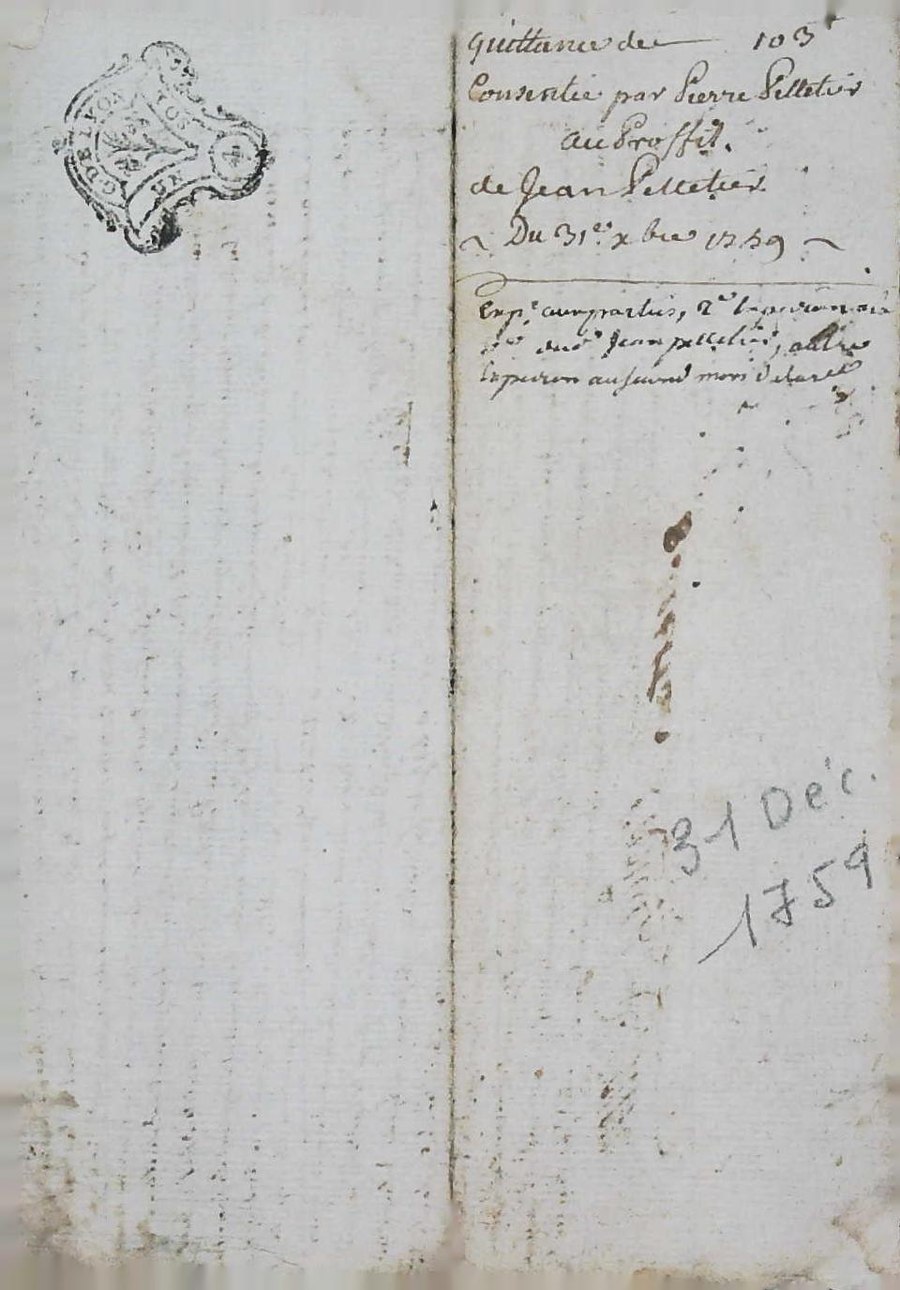 G DE LYON
UN SOL
quittance de 103#
Consentie par Pierre Pelletier
au Proffit
de Jean Pelletier
~ Du 31e xbre 1759 ~
Exp.e aux parties, 2e
dud.t Jean pelletier, autre
au second
31 Déc.
1759